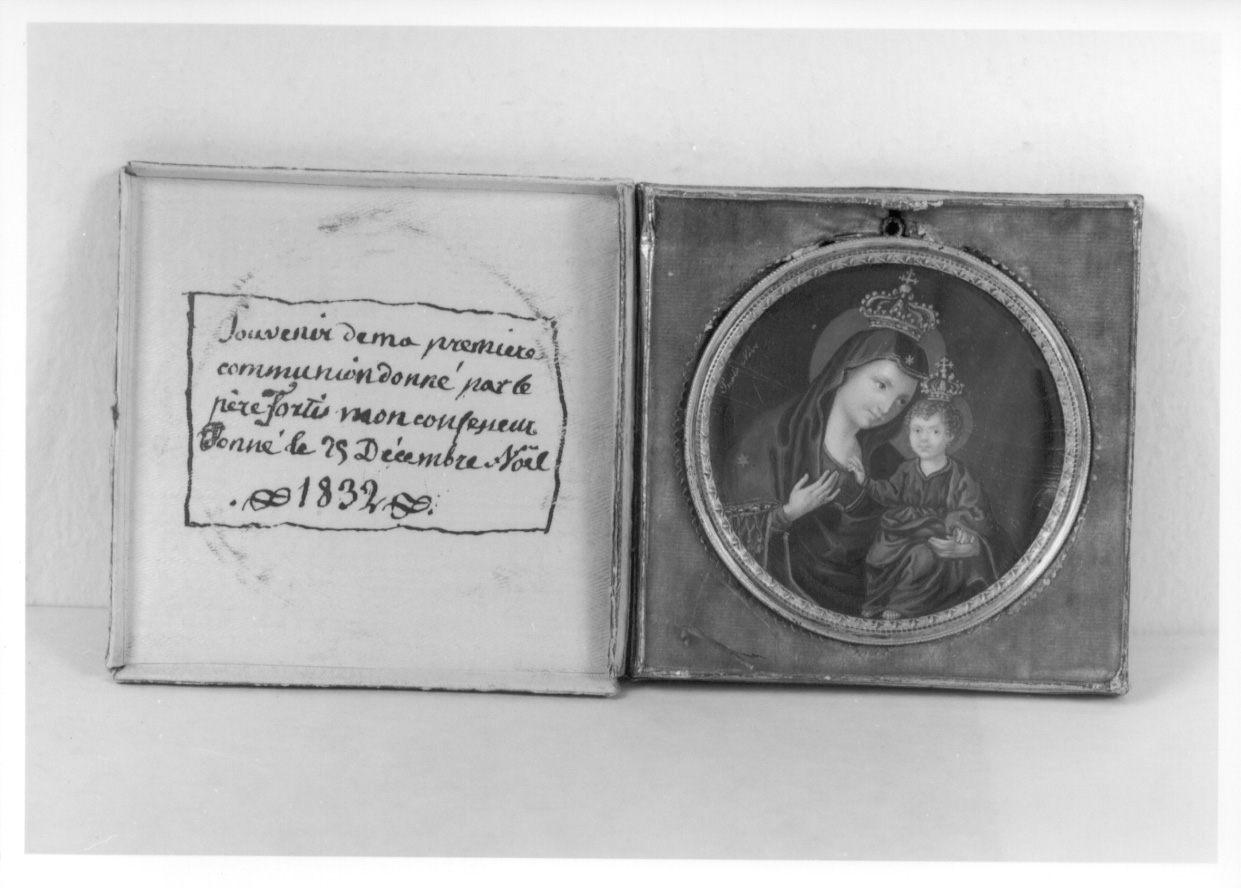 Souvenir de ma première
communion donné par le
père Fortis mon confesseur
Donné le 25 Décembre Noël
1832